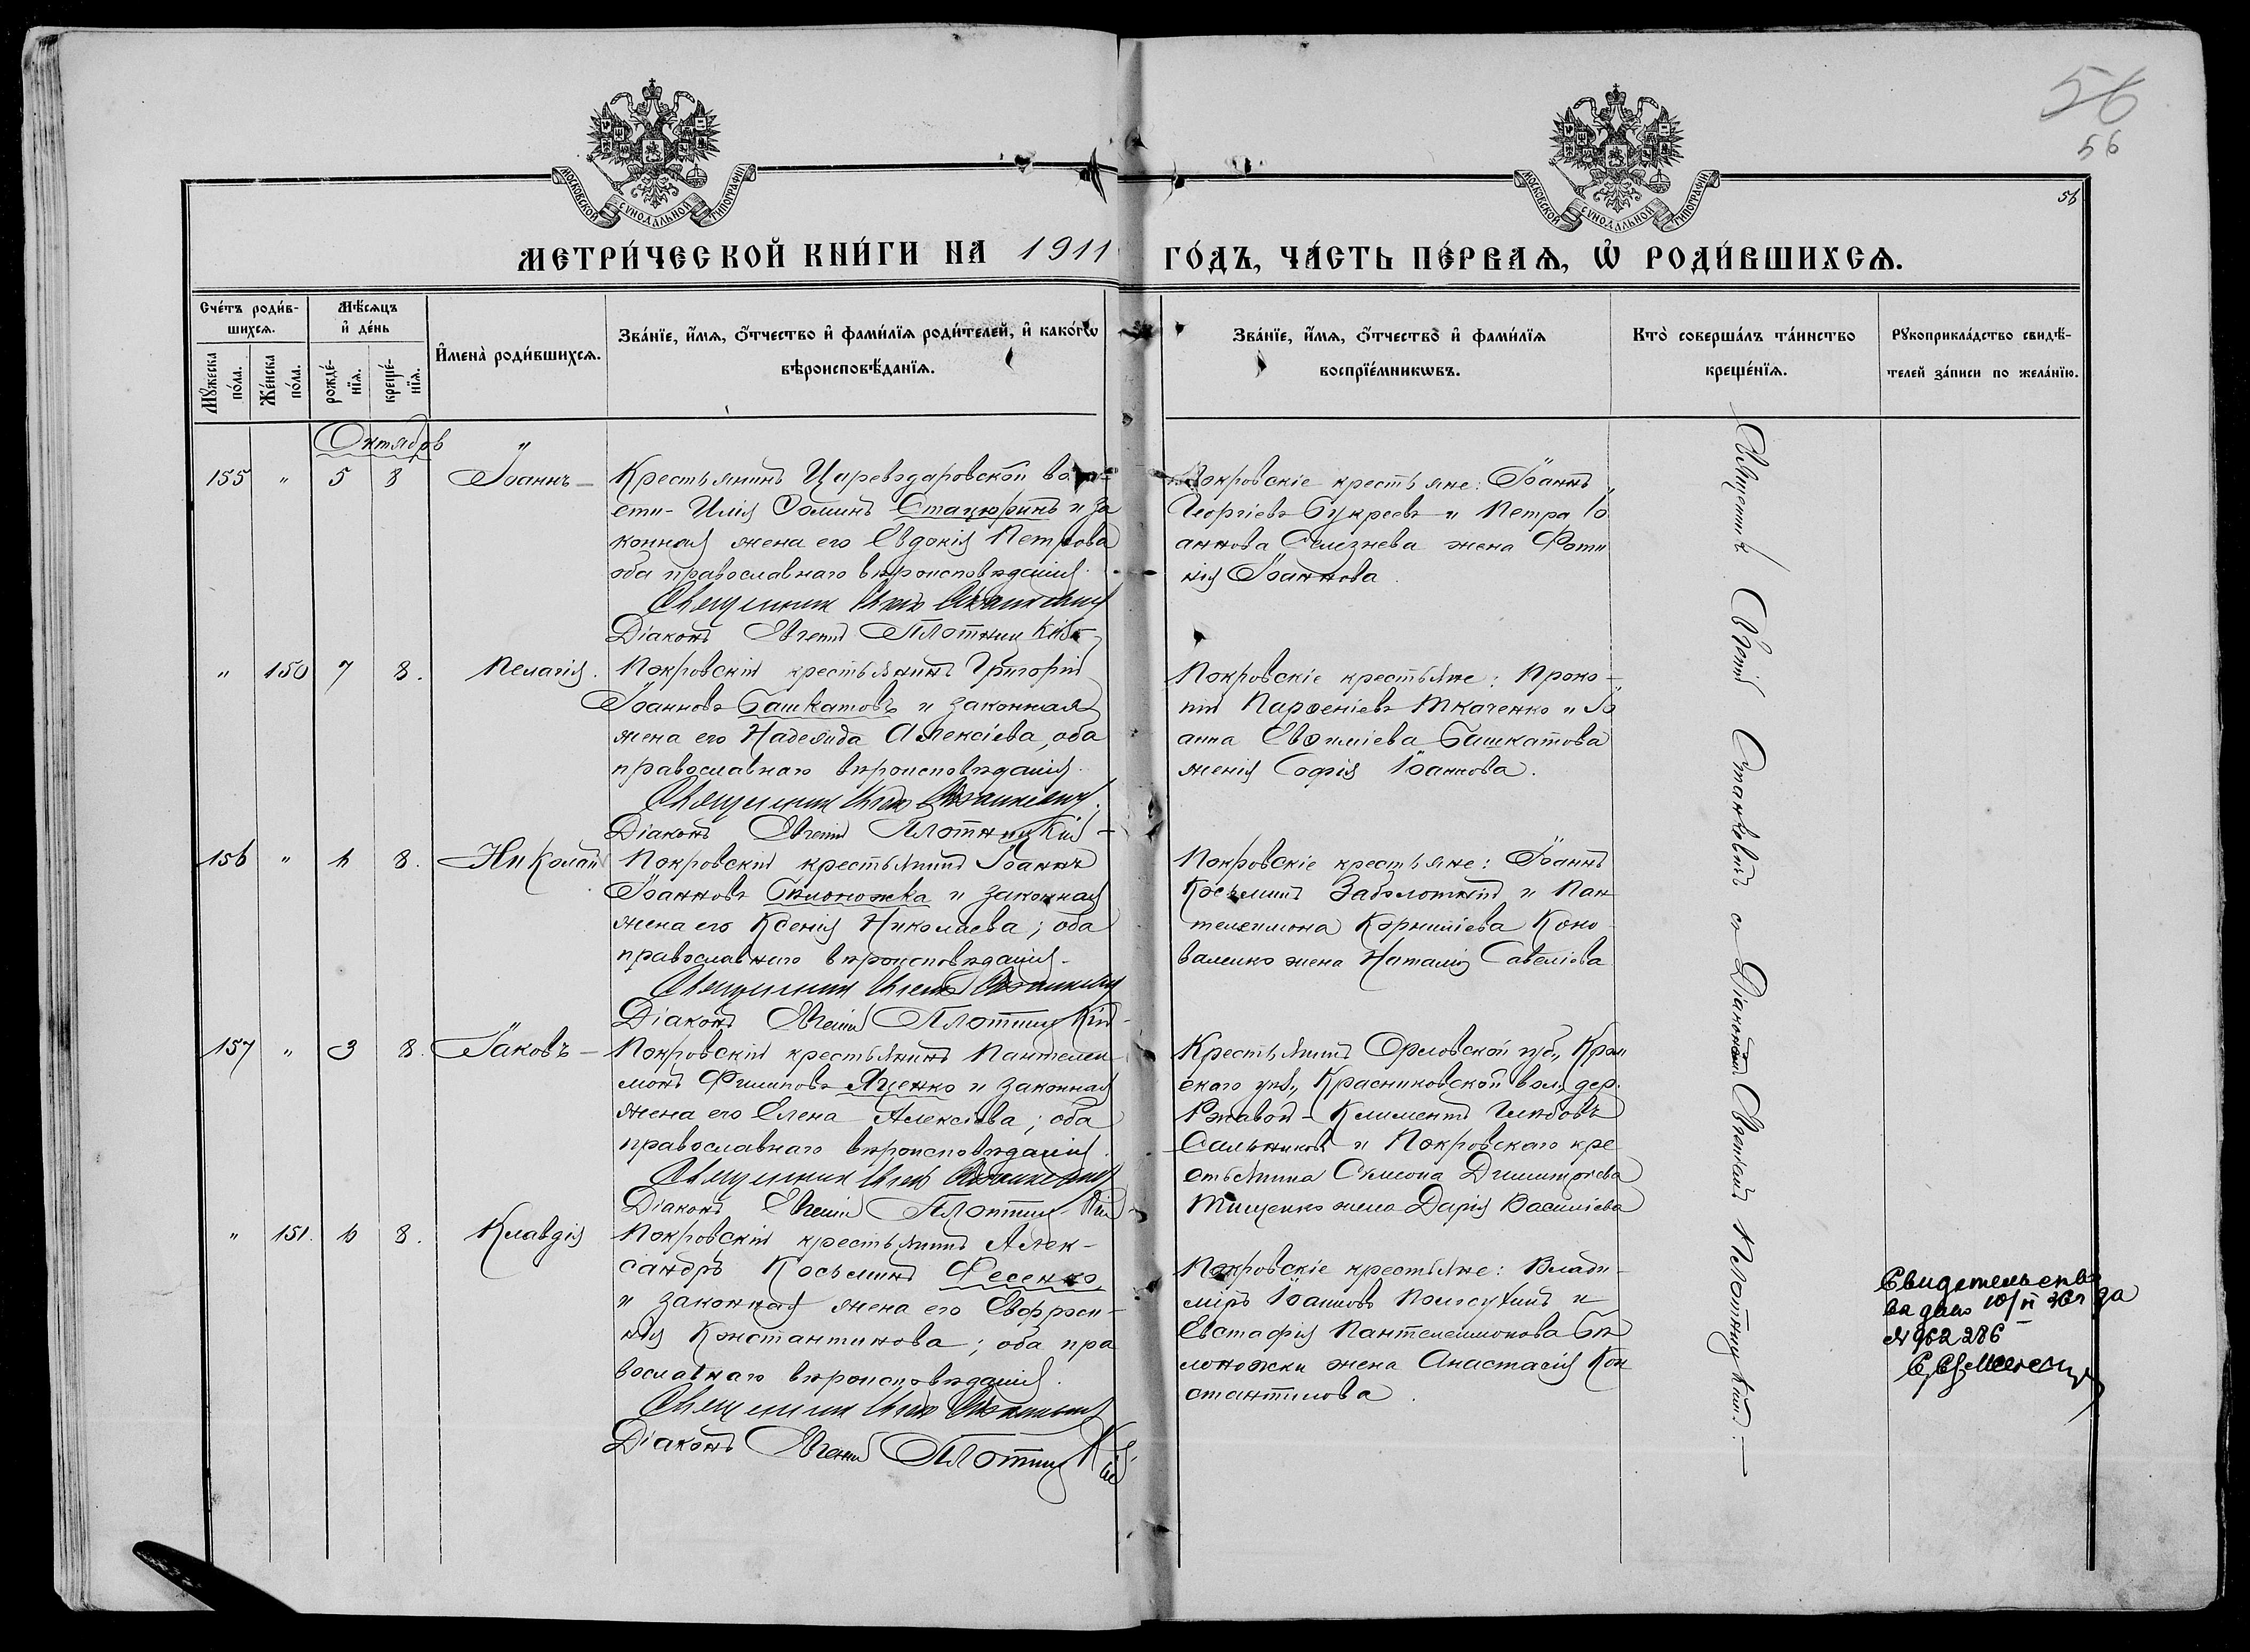 56
56
56
МОСКОВСКОЙ СѴНОДАЛЬНОЙ ТИПОГРАФІИ
МОСКОВСКОЙ СѴНОДАЛЬНОЙ ТИПОГРАФІИ
МЕТРИ́ЧЕСКОЙ КНИ́ГИ НА 1911 ГО́ДЪ, ЧА́СТЬ ПЕ́РВАѦ, Ѡ҆ РОДИ́ВШИХСѦ.
Сче́тъ роди́в-
шихсѧ.
Мꙋ́жеска по́ла.
Же́нска по́ла.
Мѣ́сѧцъ
и҆ де́нь
рожде́-
нїѧ.
креще́-
нїѧ.
И҆мена̀ роди́вшихсѧ.
Зва́нїе, и҆́мѧ, ѻ҆́тчество и҆ фами́лїѧ роди́телей, и҆ како́гѡ
вѣроисповѣ́данїѧ.
Зва́нїе, и҆́мѧ, ѻ҆́тчество и҆ фами́лїѧ
воспрїе́мникѡвъ.
Кто̀ соверша́лъ та́инство
креще́нїѧ.
Рꙋкоприкла́дство свидѣ́-
телей за́писи по жела́нїю.
Октябрь
155 " 5 8 Іоаннъ —
Крестьянинъ Царевздаровской воло-
сти - Илія Ѳоминъ Стацюринъ и за
конная жена его Евдокія Петрова
оба православнаго вѣроисповѣданія.
Священникъ Станкевичъ
Діаконъ Евгеній Плотницкій
Покровскіе крестьяне: Іоаннъ
Георгіевъ Букреевъ и Петра Іо
аннова Селезнева жена Фоти
нія Іоаннова.
" 150 7 8. Пелагія.
Покровскій крестьянинъ Григорій
Іоанновъ Башкатовъ и законная
жена его Надежда Алексіева, оба
православнаго вѣроисповѣданія.
Священникъ Станкевичъ.
Діаконъ Евгеній Плотницкій
Покровскіе крестьяне: Проко-
пій Парѳеніевъ Ткаченко и Іо
анна Евѳиміева Башкатова
жена Софія Іоаннова.
156 " 6 8. Николай
Покровскій крестьянинъ Іоаннъ
Іоанновъ Бѣлоножка и законная
жена его Ксенія Николаева; оба
православнаго вѣроисповѣданія.
Священникъ Станкевичъ
Діаконъ Евгеній Плотницкій
Покровскіе крестьяне: Іоаннъ
Косьминъ Заболотній и Пан
телеимона Корниліева Коно
валенко жена Наталія Савеліева
157 " 3 8. Іаковъ —
Покровскій крестьянинъ Пантелеи-
монъ Филиповъ Яценко и законная
жена его Елена Алексіева; оба
православнаго вѣроисповѣданія.
Священникъ Станкевичъ
Діаконъ Евгеній Плотницкій
Крестьянинъ Орловской губ., Кром
скаго уѣз., Красниковской вол., дер.
Ржавой - Климентъ Глѣбовъ
Сальниковъ и Покровскаго кре
стьянина Сѵмеона Димитріева
Тищенко жена Дарія Василіева
" 151. 6 8. Клавдія
Покровскій крестьянинъ Алек-
сандръ Косьминъ Фесенко
и законная жена его Евфроси-
нія Константинова; оба пра
вославнаго вѣроисповѣданія.
Священникъ Станкевичъ
Діаконъ Евгеній Плотницкій
Покровскіе крестьяне: Влади-
міръ Іоанновъ и
Евстафія Пантелеимонова Бѣ
лоножки жена Анастасія Кон
стантинова.
Станковичъ съ Діакономъ Евгеніемъ Плотницкимъ. —
Свидетельст-
ва дано 10/II 36г за
№ 962286